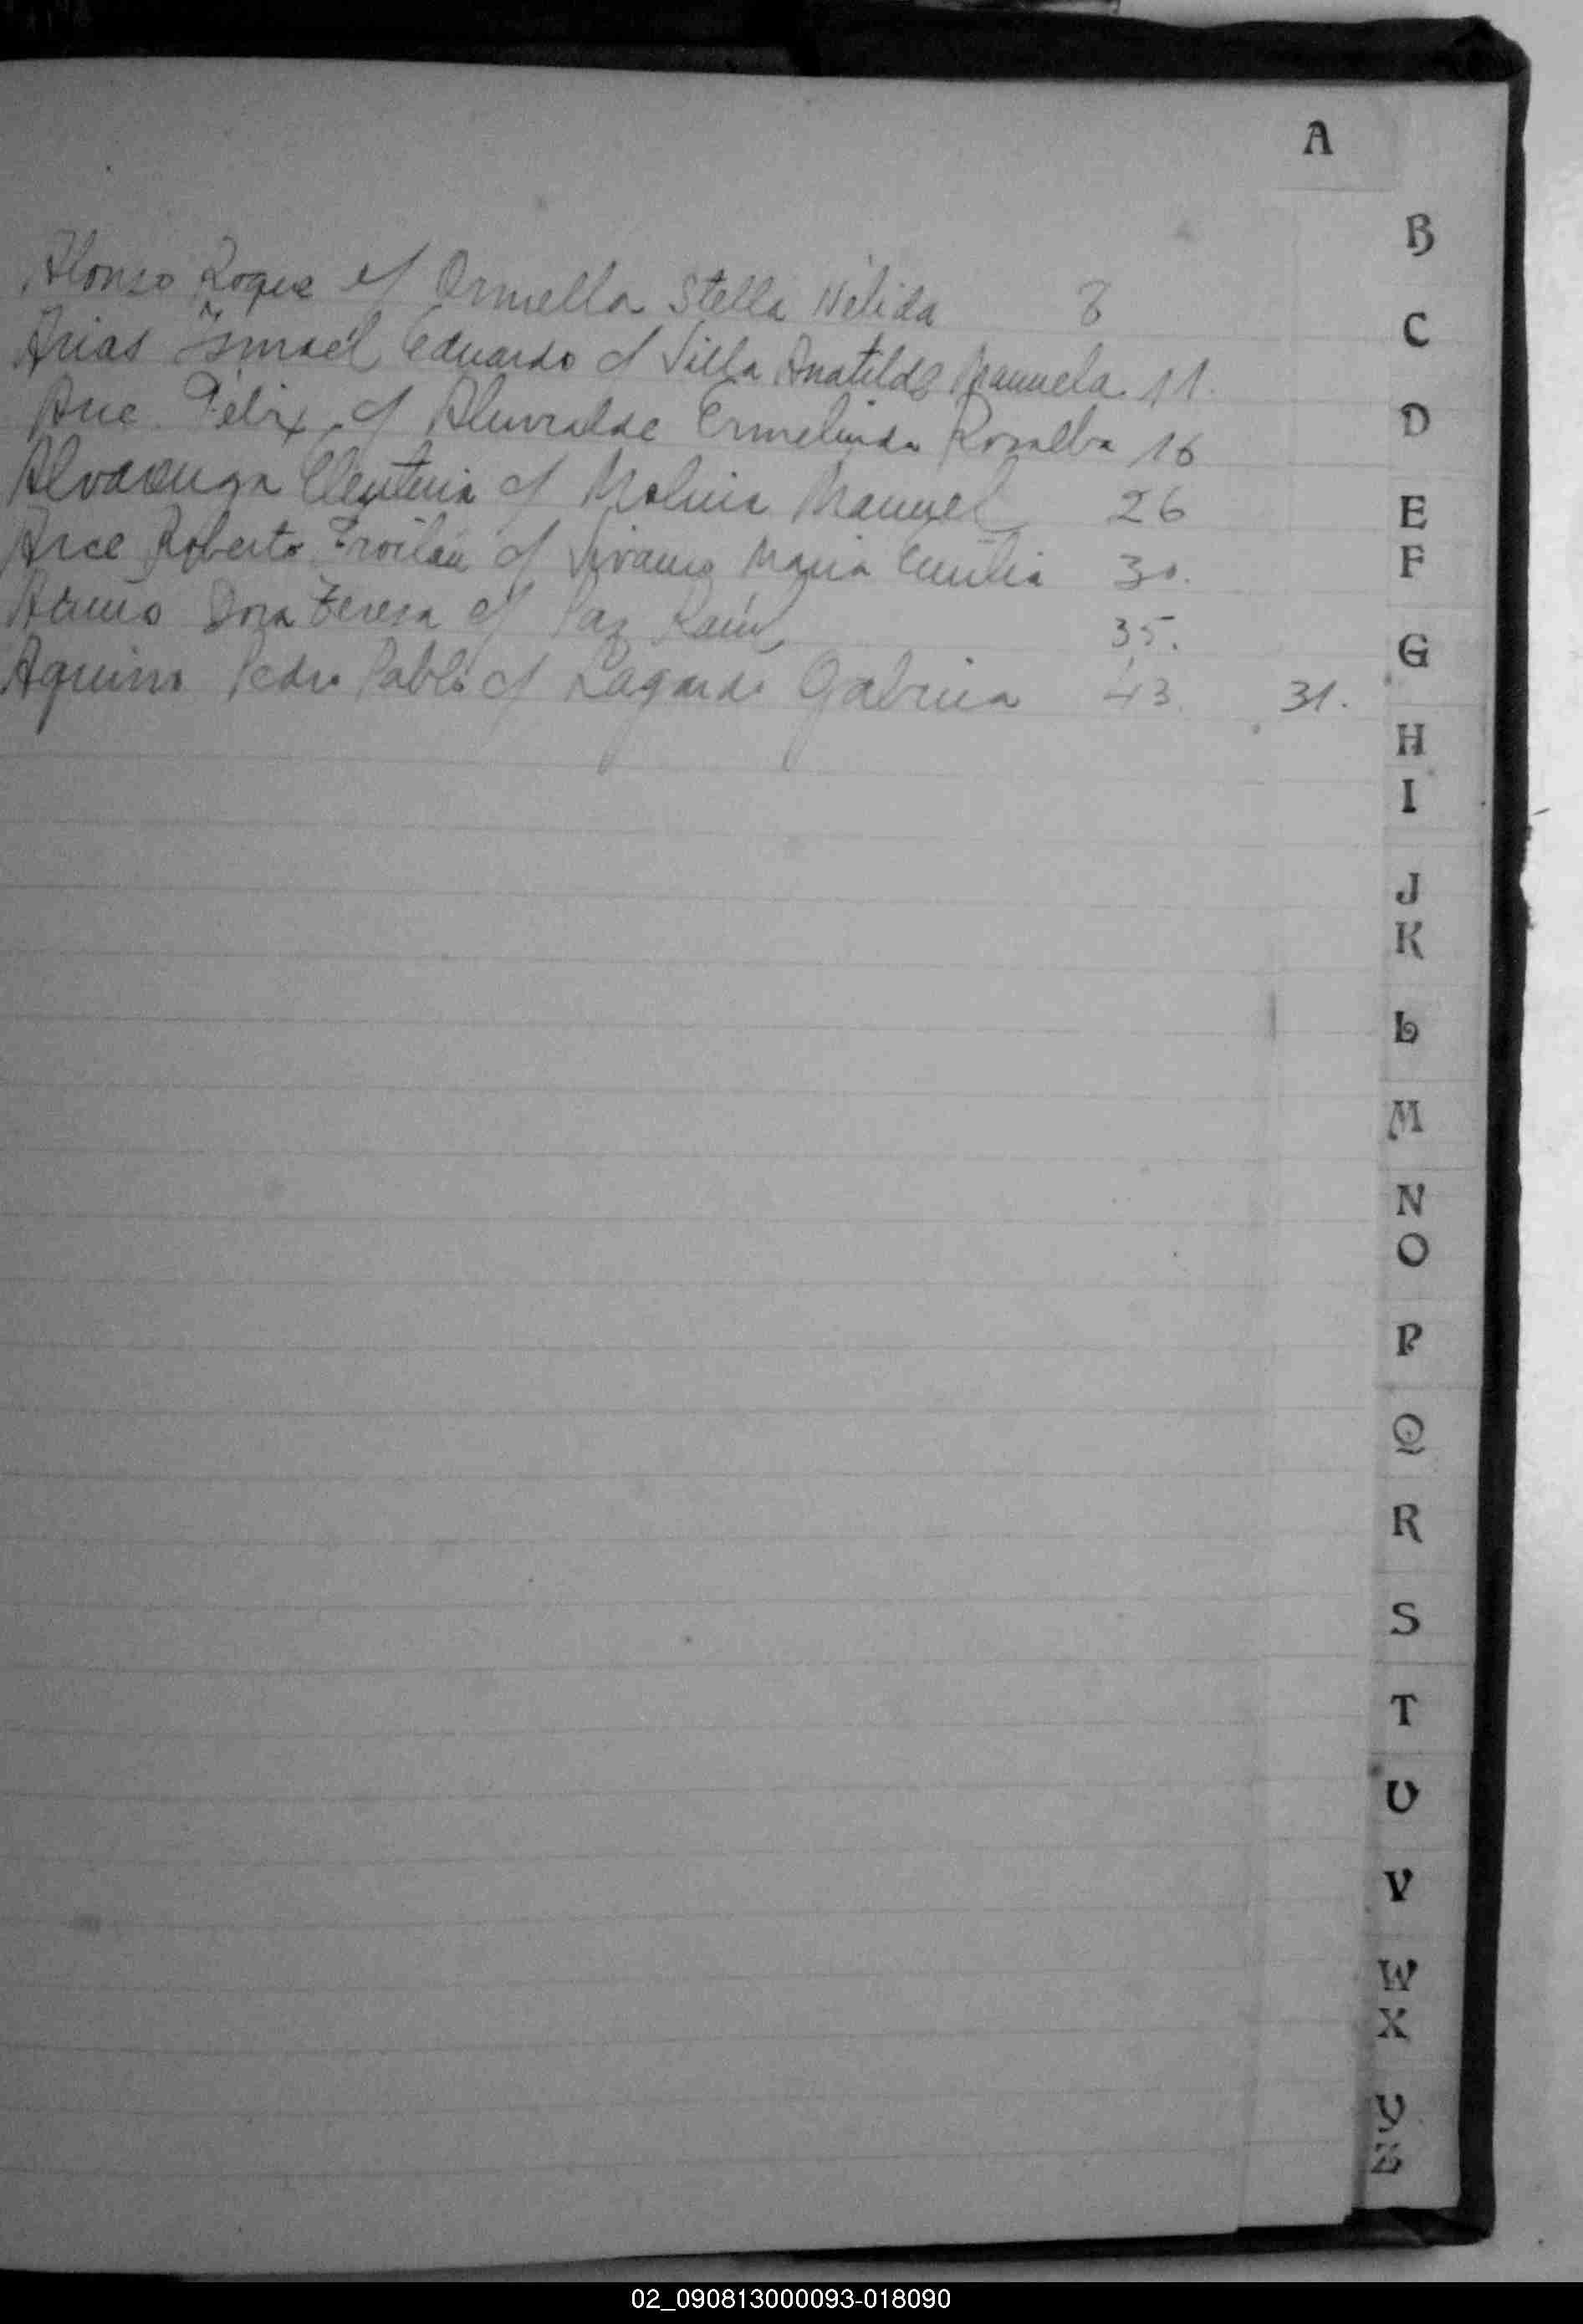 A
Alonso Roque c/ Ormella Stella Nélida 8
Arias Ismael Eduardo c/ Villa Anatilde Manuela 11.
Arce Félix c/ Ermelinda Rosalba 16
Alvarenga c/ Manuel 26
Arce Roberto Froilán c/ Maria Emilia 30.
Dora Teresa c/ Paz Raúl 35.
Aquino Pedro Pablo c/ Gabina 43. 31.
B
C
D
E
F
G
H
I
J
K
L
M
N
O
P
Q
R
S
T
U
V
W
X
Y
Z
02_090813000093-018090